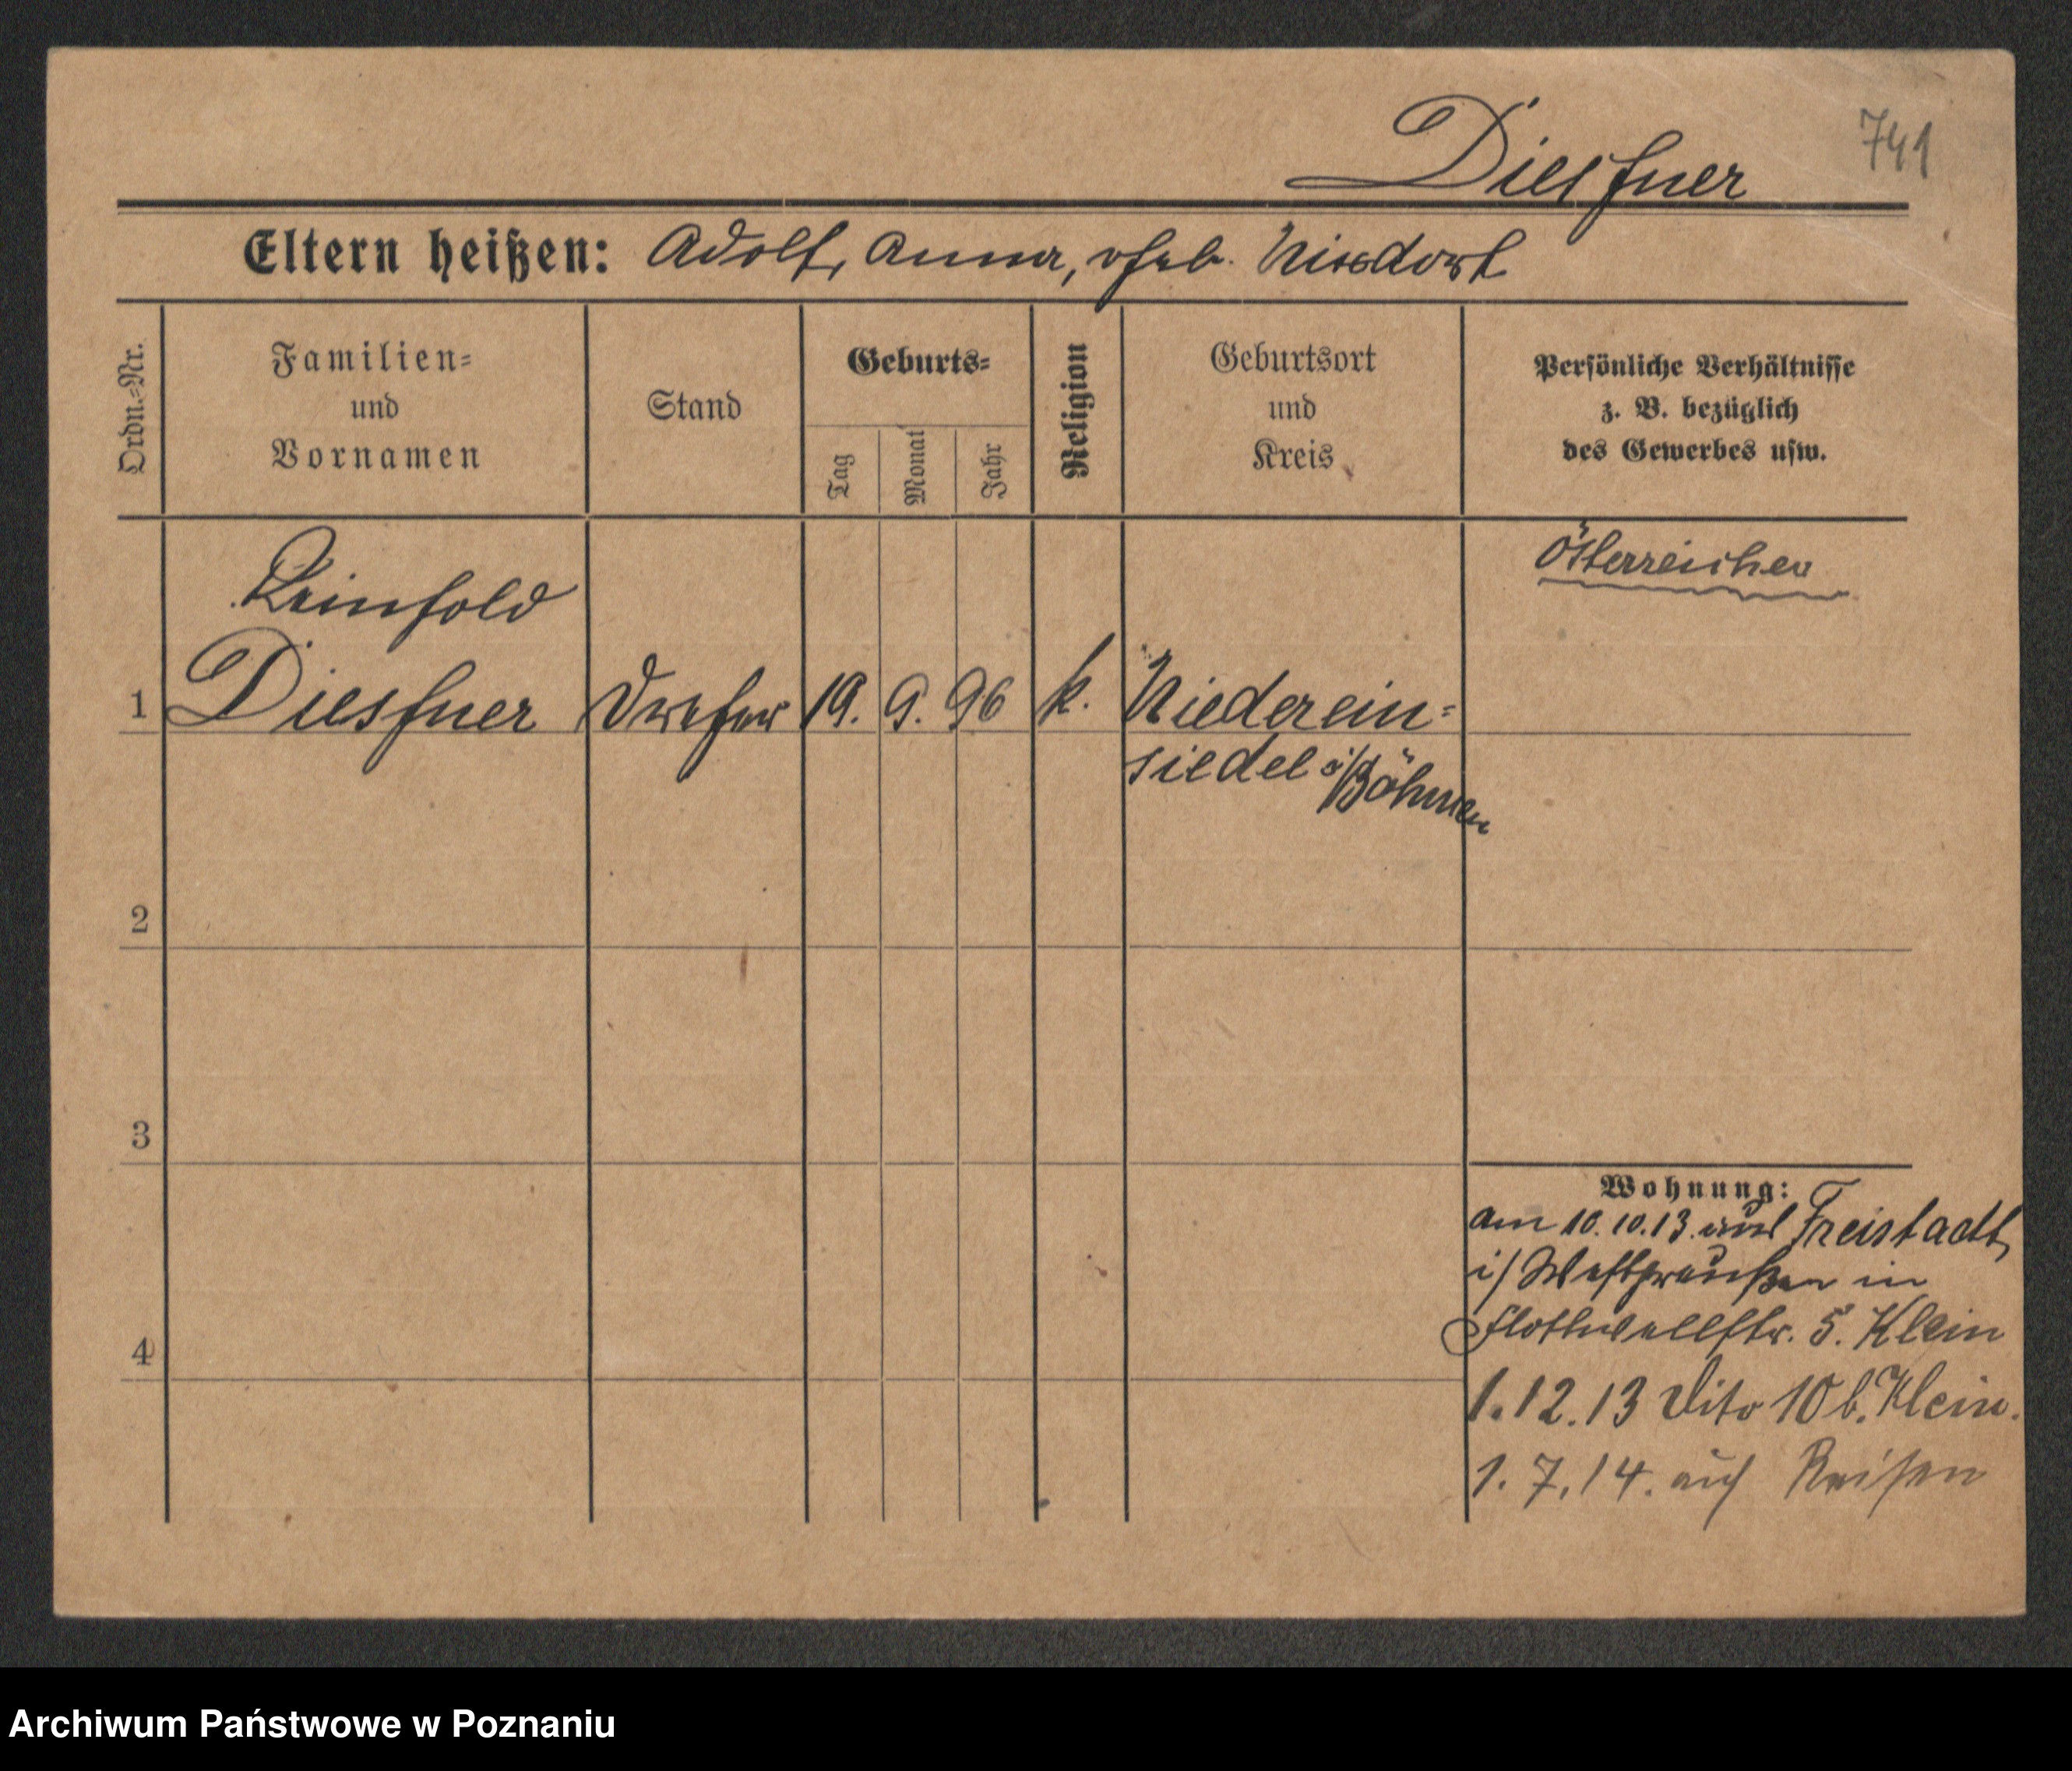 741
Diessner
Eltern heißen: Adolf, Anna, geb. Nixdorf
Ordn.-Nr.
Familien-
und
Vornamen
Stand
Geburts-
Tag
Monat
Jahr
Religion
Geburtsort
und
Kreis
Persönliche Verhältnisse
z. B. bezüglich
des Gewerbes usw.
Österreicher
Reinhold
1 Diessner Dreher 19. 9. 96 k. Niederein-
siedel i/Böhmen
2
3
4
Wohnung:
am 10.10.13 aus Freistadt
i/ Westpreußen in
Flottwellstr. 5. Klein
1.12.13 dito 10 b. Klein.
1.7.14. auf Reisen
Archiwum Państwowe w Poznaniu